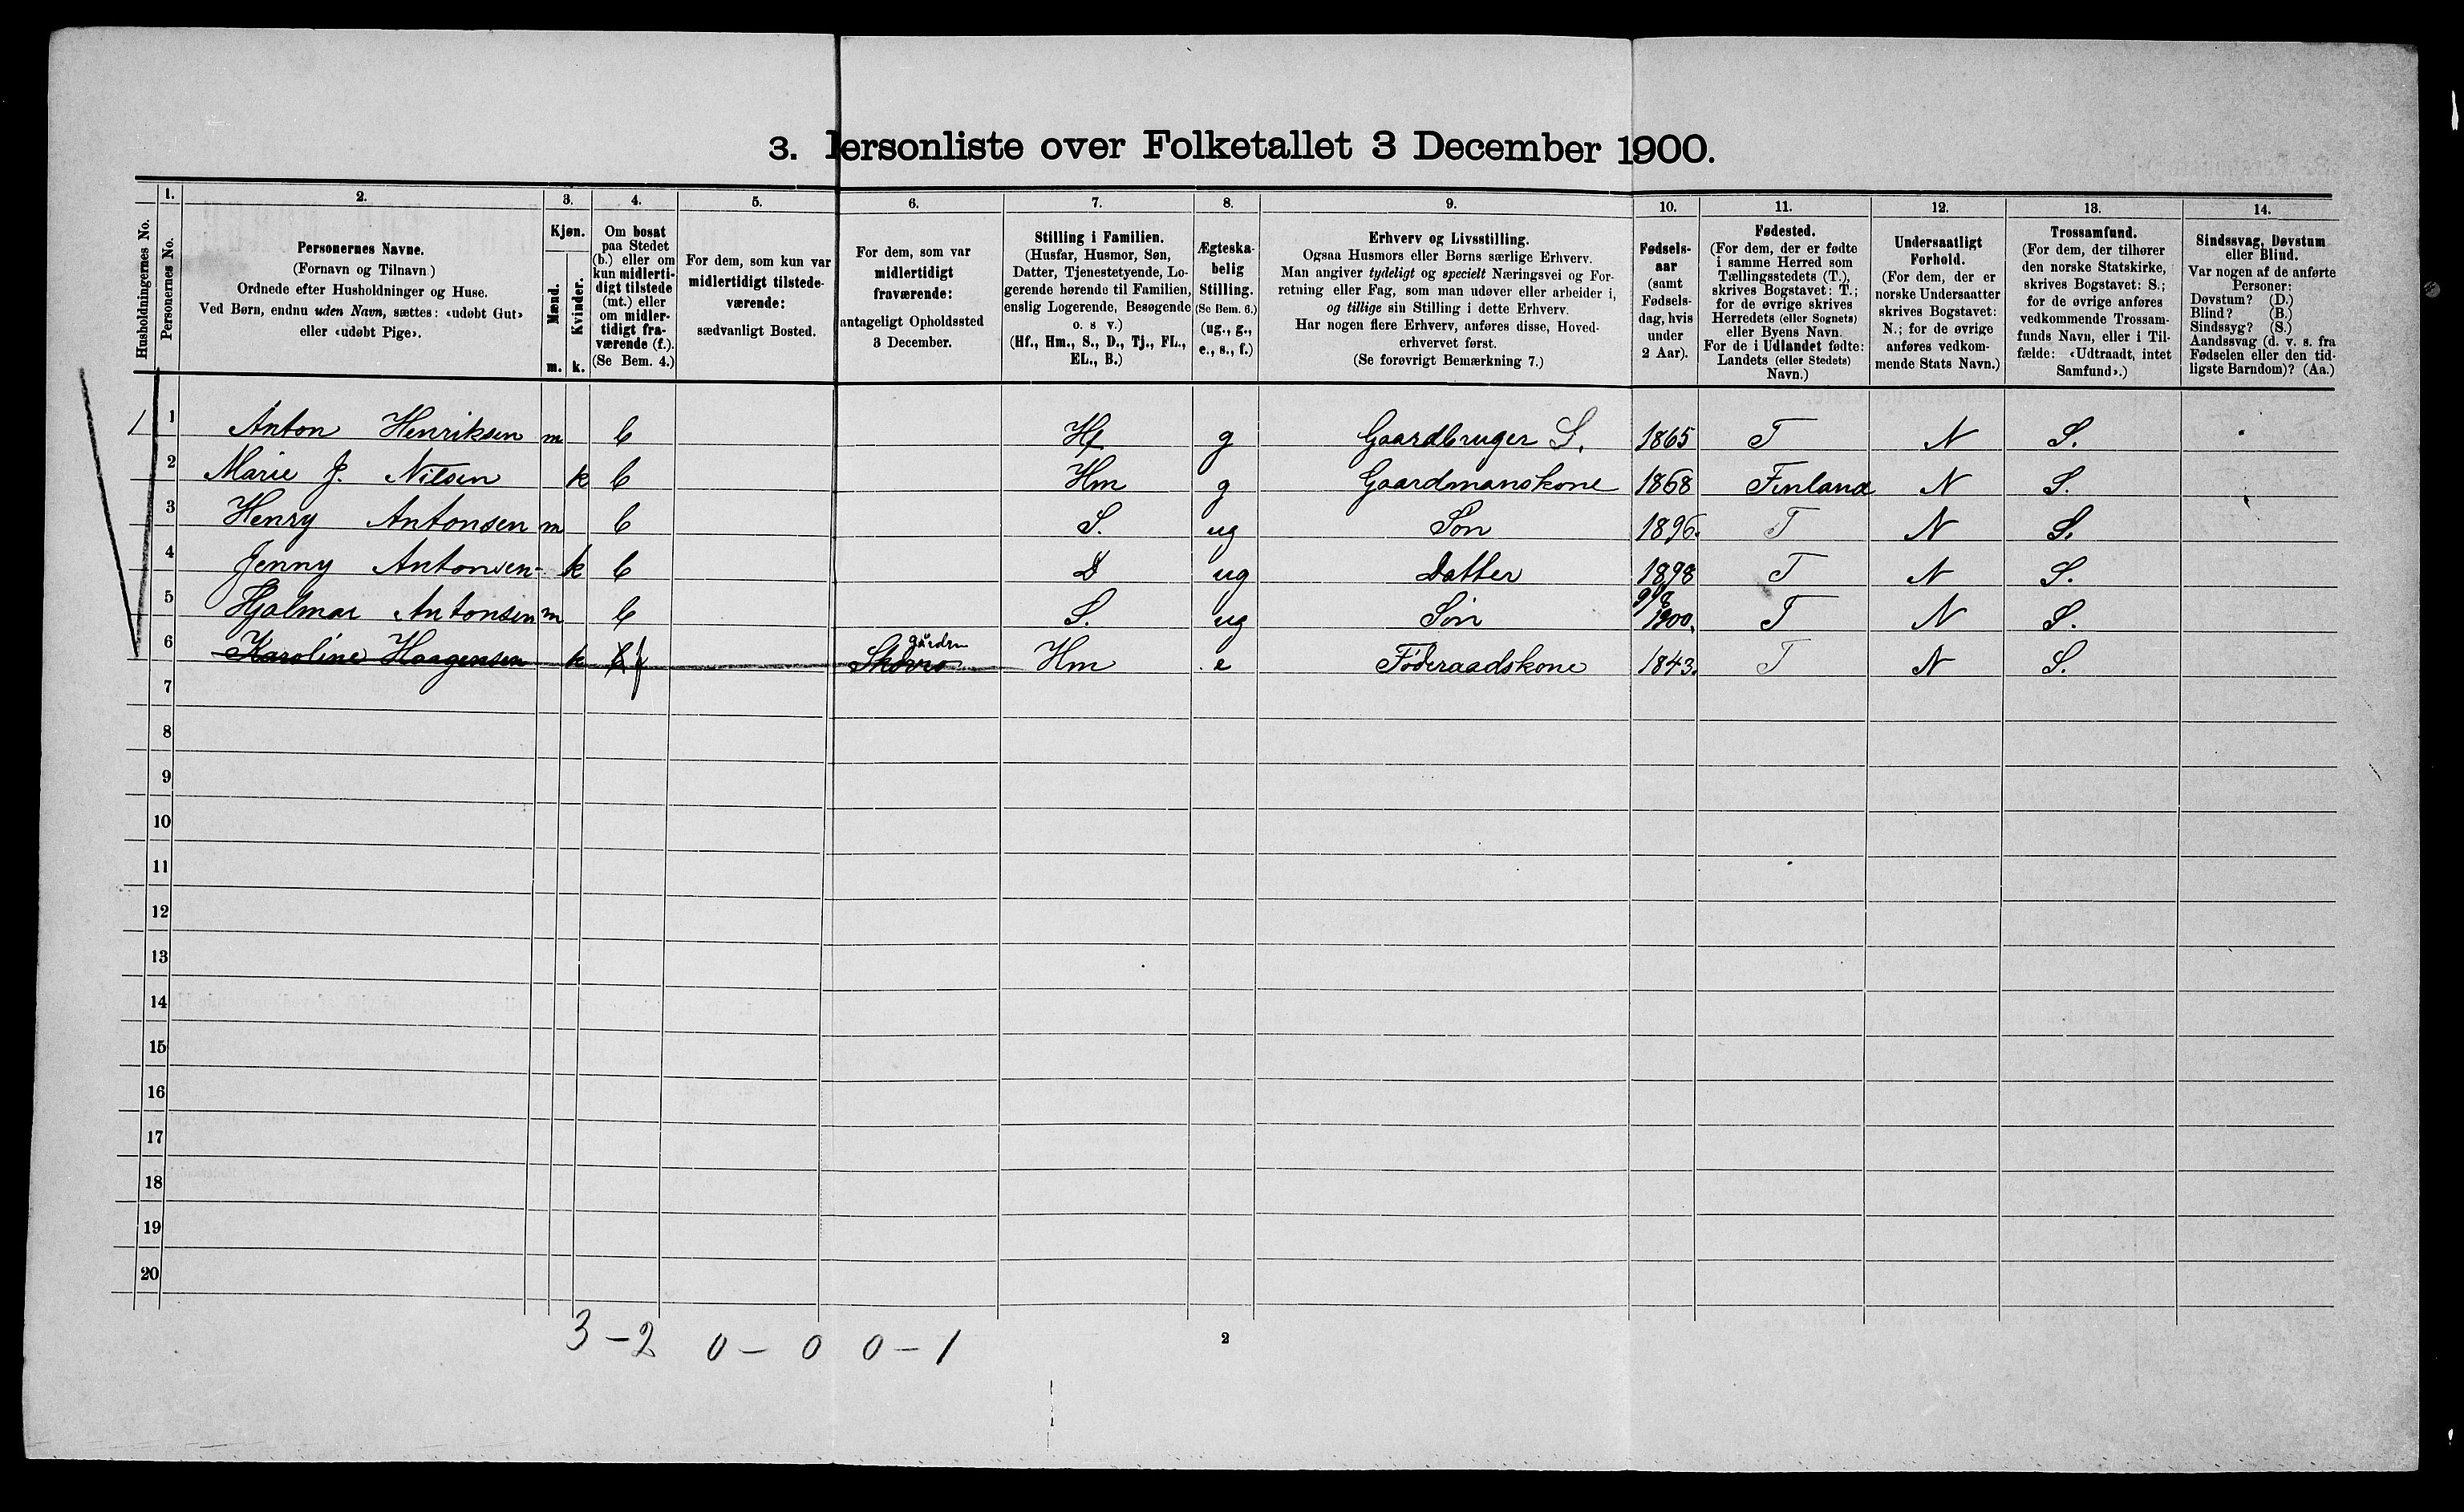 3. Personliste over Folketallet 3 December 1900.
Husholdningernes No.
1.
Personernes No.
2.
Personernes Navne.
(Fornavn og Tilnavn)
Ordnede efter Husholdninger og Huse.
Ved Børn, endnu uden Navn, sættes: «udøbt Gut»
eller «udøbt Pige».
3.
Kjøn.
Mænd.
Kvinder.
m. k.
4.
Om bosat
paa Stedet
(b.) eller om
kun midlerti-
digt tilstede
(mt.) eller
om midler-
tidigt fra-
værende (f.).
(Se Bem. 4.)
5.
For dem, som kun var
midlertidigt tilstede-
værende:
sædvanligt Bosted.
6.
For dem, som var
midlertidigt
fraværende:
antageligt Opholdssted
3 December.
7.
Stilling i Familien.
(Husfar, Husmor, Søn,
Datter, Tjenestetyende, Lo-
gerende hørende til Familien,
enslig Logerende, Besøgende
o. s v.)
(Hf., Hm., S., D., Tj., FL.,
EL., B.)
8.
Ægteska-
belig
Stilling.
(Se Bem. 6.)
(ug., g.,
e., s., f.)
9.
Erhverv og Livsstilling.
Ogsaa Husmors eller Børns særlige Erhverv.
Man angiver tydeligt og specielt Næringsvei og For-
retning eller Fag, som man udøver eller arbeider i,
og tillige sin Stilling i dette Erhverv.
Har nogen flere Erhverv, anføres disse, Hoved-
erhvervet først.
(Se forøvrigt Bemærkning 7.)
10.
Fødsels-
aar
(samt
Fødsels-
dag, hvis
under
2 Aar).
11.
Fødested.
(For dem, der er fødte
i samme Herred som
Tællingsstedets (T.),
skrives Bogstavet: T.;
for de øvrige skrives
Herredets (eller Sognets)
eller Byens Navn.
For de i Udlandet fødte:
Landets (eller Stedets)
Navn.)
12.
Undersaatligt
Forhold.
(For dem, der er
norske Undersaatter
skrives Bogstavet:
N.; for de øvrige
anføres vedkom-
mende Stats Navn.)
13.
Trossamfund.
(For dem, der tilhører
den norske Statskirke,
skrives Bogstavet: S.;
for de øvrige anføres
vedkommende Trossam-
funds Navn, eller i Til-
fælde: «Udtraadt, intet
Samfund».)
14.
Sindssvag, Døvstum
eller Blind.
Var nogen af de anførte
Personer:
Døvstum? (D.)
Blind? (B.)
Sindssyg? (S.)
Aandssvag (d. v. s. fra
Fødselen eller den tid-
ligste Barndom)? (Aa.)
1 1 Anton Henriksen m b Hf. g Gaardbruger S. 1865 T N S.
2 Marie J. Nilsen k b Hm g Gaardmanskone 1868 Finland N S.
3 Henry Antonsen m b S. ug Søn 1896. T N S.
4 Jenny Antonsen k b D ug Datter 1898 T N S.
5 Hjalmar Antonsen m b S. ug Søn 9/8 1900. T N S.
6 Karoline Haagensen k f gården Hm e Føderaadskone 1843. T N S.
7
8
9
10
11
12
13
14
15
16
17
18
19
20
3 - 2 0 - 0 0 - 1
2